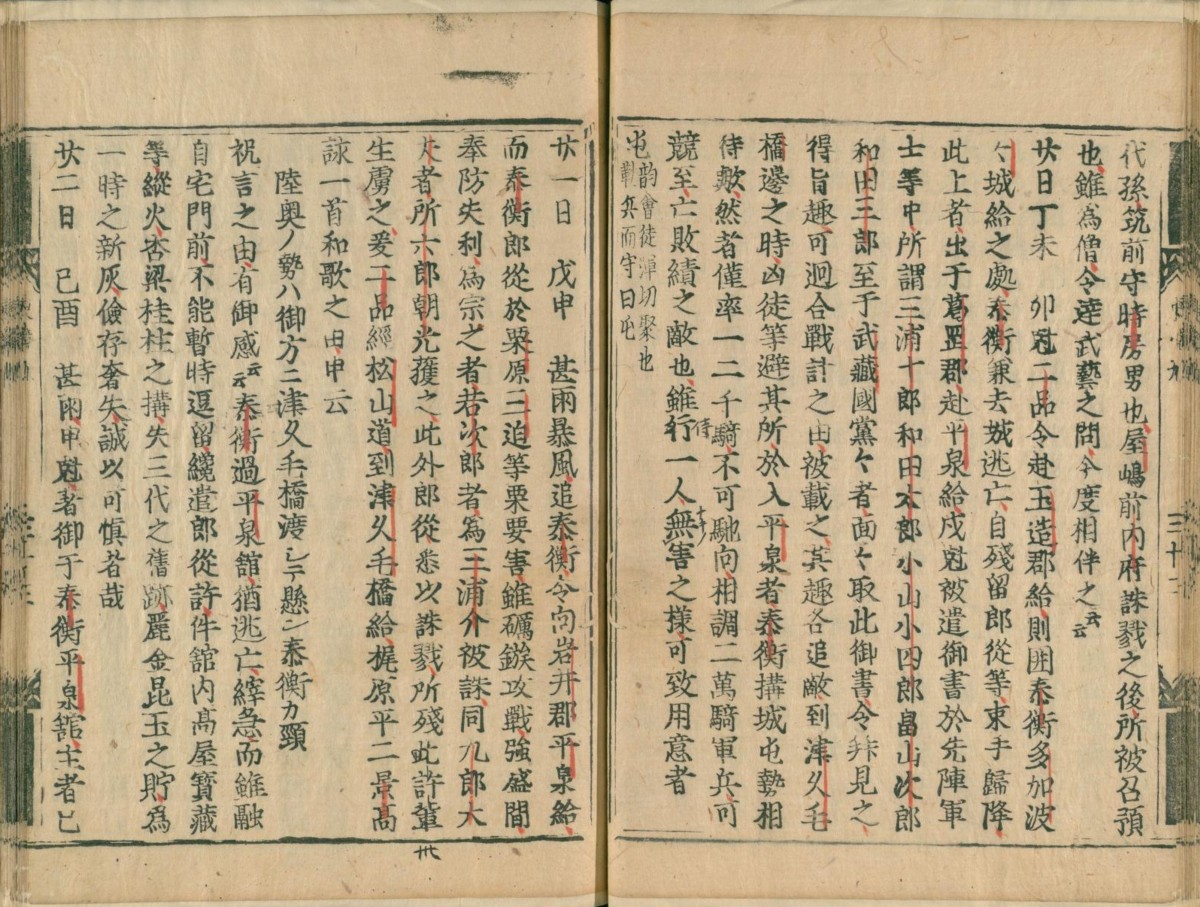 代孫筑前守時房男也屋嶋前内府誅戮之後所被召預
也雖為僧令達武藝之間今度相伴之云云
廿日丁未　卯尅二品令赴玉造郡給則囲泰衡多加波
々城給之處泰衡兼去城逃亡自残留郎從等束手歸降
此上者出于葛罡郡赴平泉給戌尅被遣御書於先陣軍
士等中所謂三浦十郎和田太郎小山小四郎畠山次郎
和田三郎至于武藏國黨々者面々取此御書令拜見之
得旨趣可迴合戰計之由被載之其趣各追敵到津久毛
橋邊之時凶徒等避其所於入平泉者泰衡搆城屯勢相
待歟然者僅率一二千騎不可馳向相調二萬騎軍兵可
競至亡敗績之敵也雖行一人無害之様可致用意者
屯韵會徒渾切聚也
勒兵而守曰屯
廿一日　戊申　甚雨暴風追泰衡令向岩井郡平泉給
而泰衡郎從於栗原三迫等栗要害雖礪鏃攻戰強盛間
奉防失利為宗之者若次郎者為三浦介被誅同九郎大
夫者所六郎朝光獲之此外郎從悉以誅戮所残此許輩
卅
生虜之爰二品經松山道到津久毛橋給梶原平二景高
詠一首和歌之由申云
陸奥ノ勢ハ御方ニ津久毛橋渡シテ懸ン泰衡カ頸
祝言之由有御感云云泰衡過平泉舘猶逃亡縡急而雖融
自宅門前不能暫時逗留纔遣郎從許件舘内髙屋寶藏
等縱火杏梁桂柱之搆失三代之舊跡麗金昆玉之貯為
一時之新灰儉存奢失誠以可愼者哉
廿二日　己酉　甚雨申尅著御于泰衡平泉舘主者已